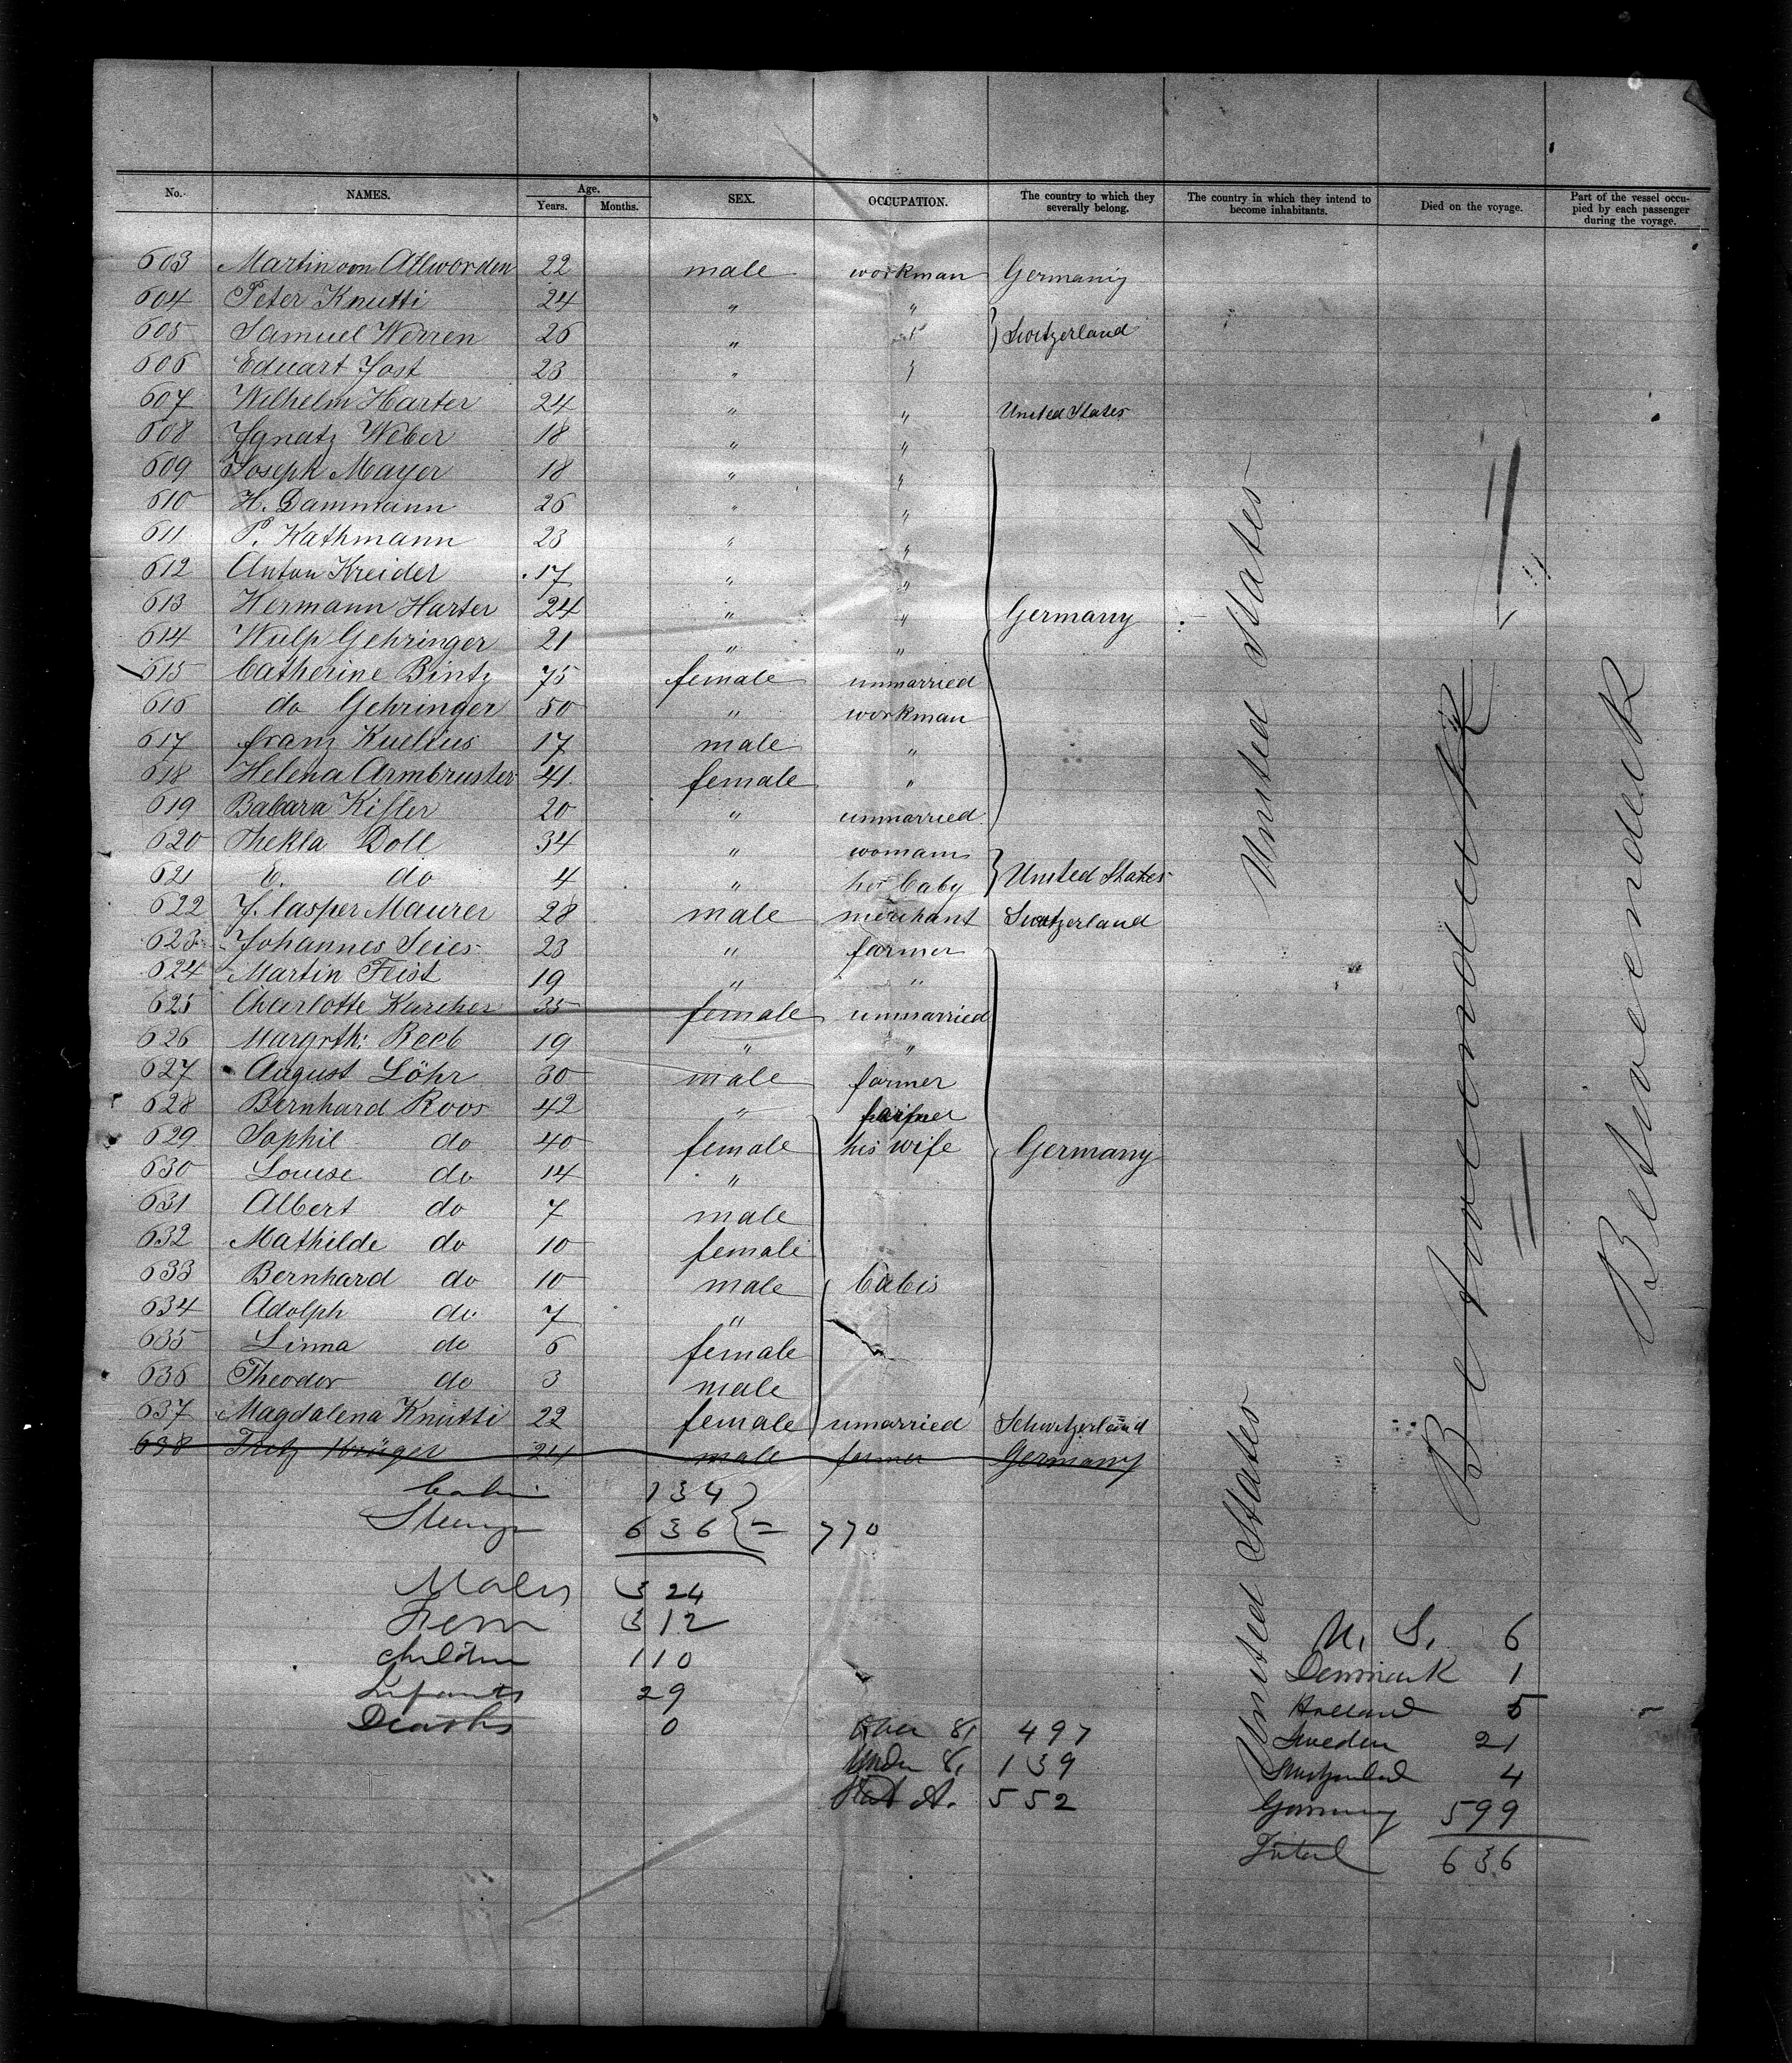 No. NAMES. Age. Years. Months. SEX. OCCUPATION. The country to which they severally belong. The country in which they intend to become inhabitants. Died on the voyage. Part of the vessel occupied by each passenger during the voyage.
603 Martin von Allworden 22 male workman Germany
604 Peter Knutti 24 " "
605 Samuel Werren 26 " " } Switzerland
606 Eduart Jost 23 " "
607 Wilhelm Harter 24 " " United States
608 Ignatz Weber 18 " "
609 Joseph Mayer 18 " "
610 H. Dammann 26 " "
611 P. Kathmann 23 " "
612 Anton Kreider 17 " "
613 Hermann Harter 24 " " Germany
614 Wulp Gehringer 21 " "
615 Catherine Bintz 75 female unmarried
616 do Gehringer 50 " workman
617 franz Kuelius 17 male "
618 Helena Armbruster 41 female "
619 Babara Kifler 20 " unmarried
620 Thekla Doll 34 " womann
621 E. do 4 " her baby } United States
622 J. Casper Maurer 28 male merchant Switzerland
623 Johannes Seies 23 " farmer
624 Martin Feist 19 " "
625 Charlotte Karcher 35 female unmarried
626 Margrth: Reeb 19 " "
627 August Löhr 30 male farmer
628 Bernhard Roos 42 " farmer
629 Sophie do 40 female his wife Germany
630 Louise do 14 "
631 Albert do 7 male
632 Mathilde do 10 female
633 Bernhard do 10 male babis
634 Adolph do 7 "
635 Linna do 6 female
636 Theodor do 3 male
637 Magdalena Knutti 22 female unmarried Schwitzerland
638 Fritz Krüger 24 male farmer Germany
United States
United States
Betweendeck
Betweendeck
Cabin 134
Steerage 636 } = 770
Males 324
Fem 312
Children 110
Infants 29
Deaths 0
Over 8, 497
Under 8, 139
552
U. S. 6
Denmark 1
Holland 5
Sweden 21
Switzerland 4
Germany 599
Total 636